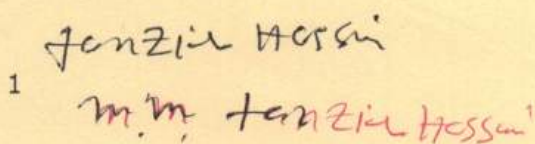 Tanzir Hossin
1
M.M. Tanzir Hossain